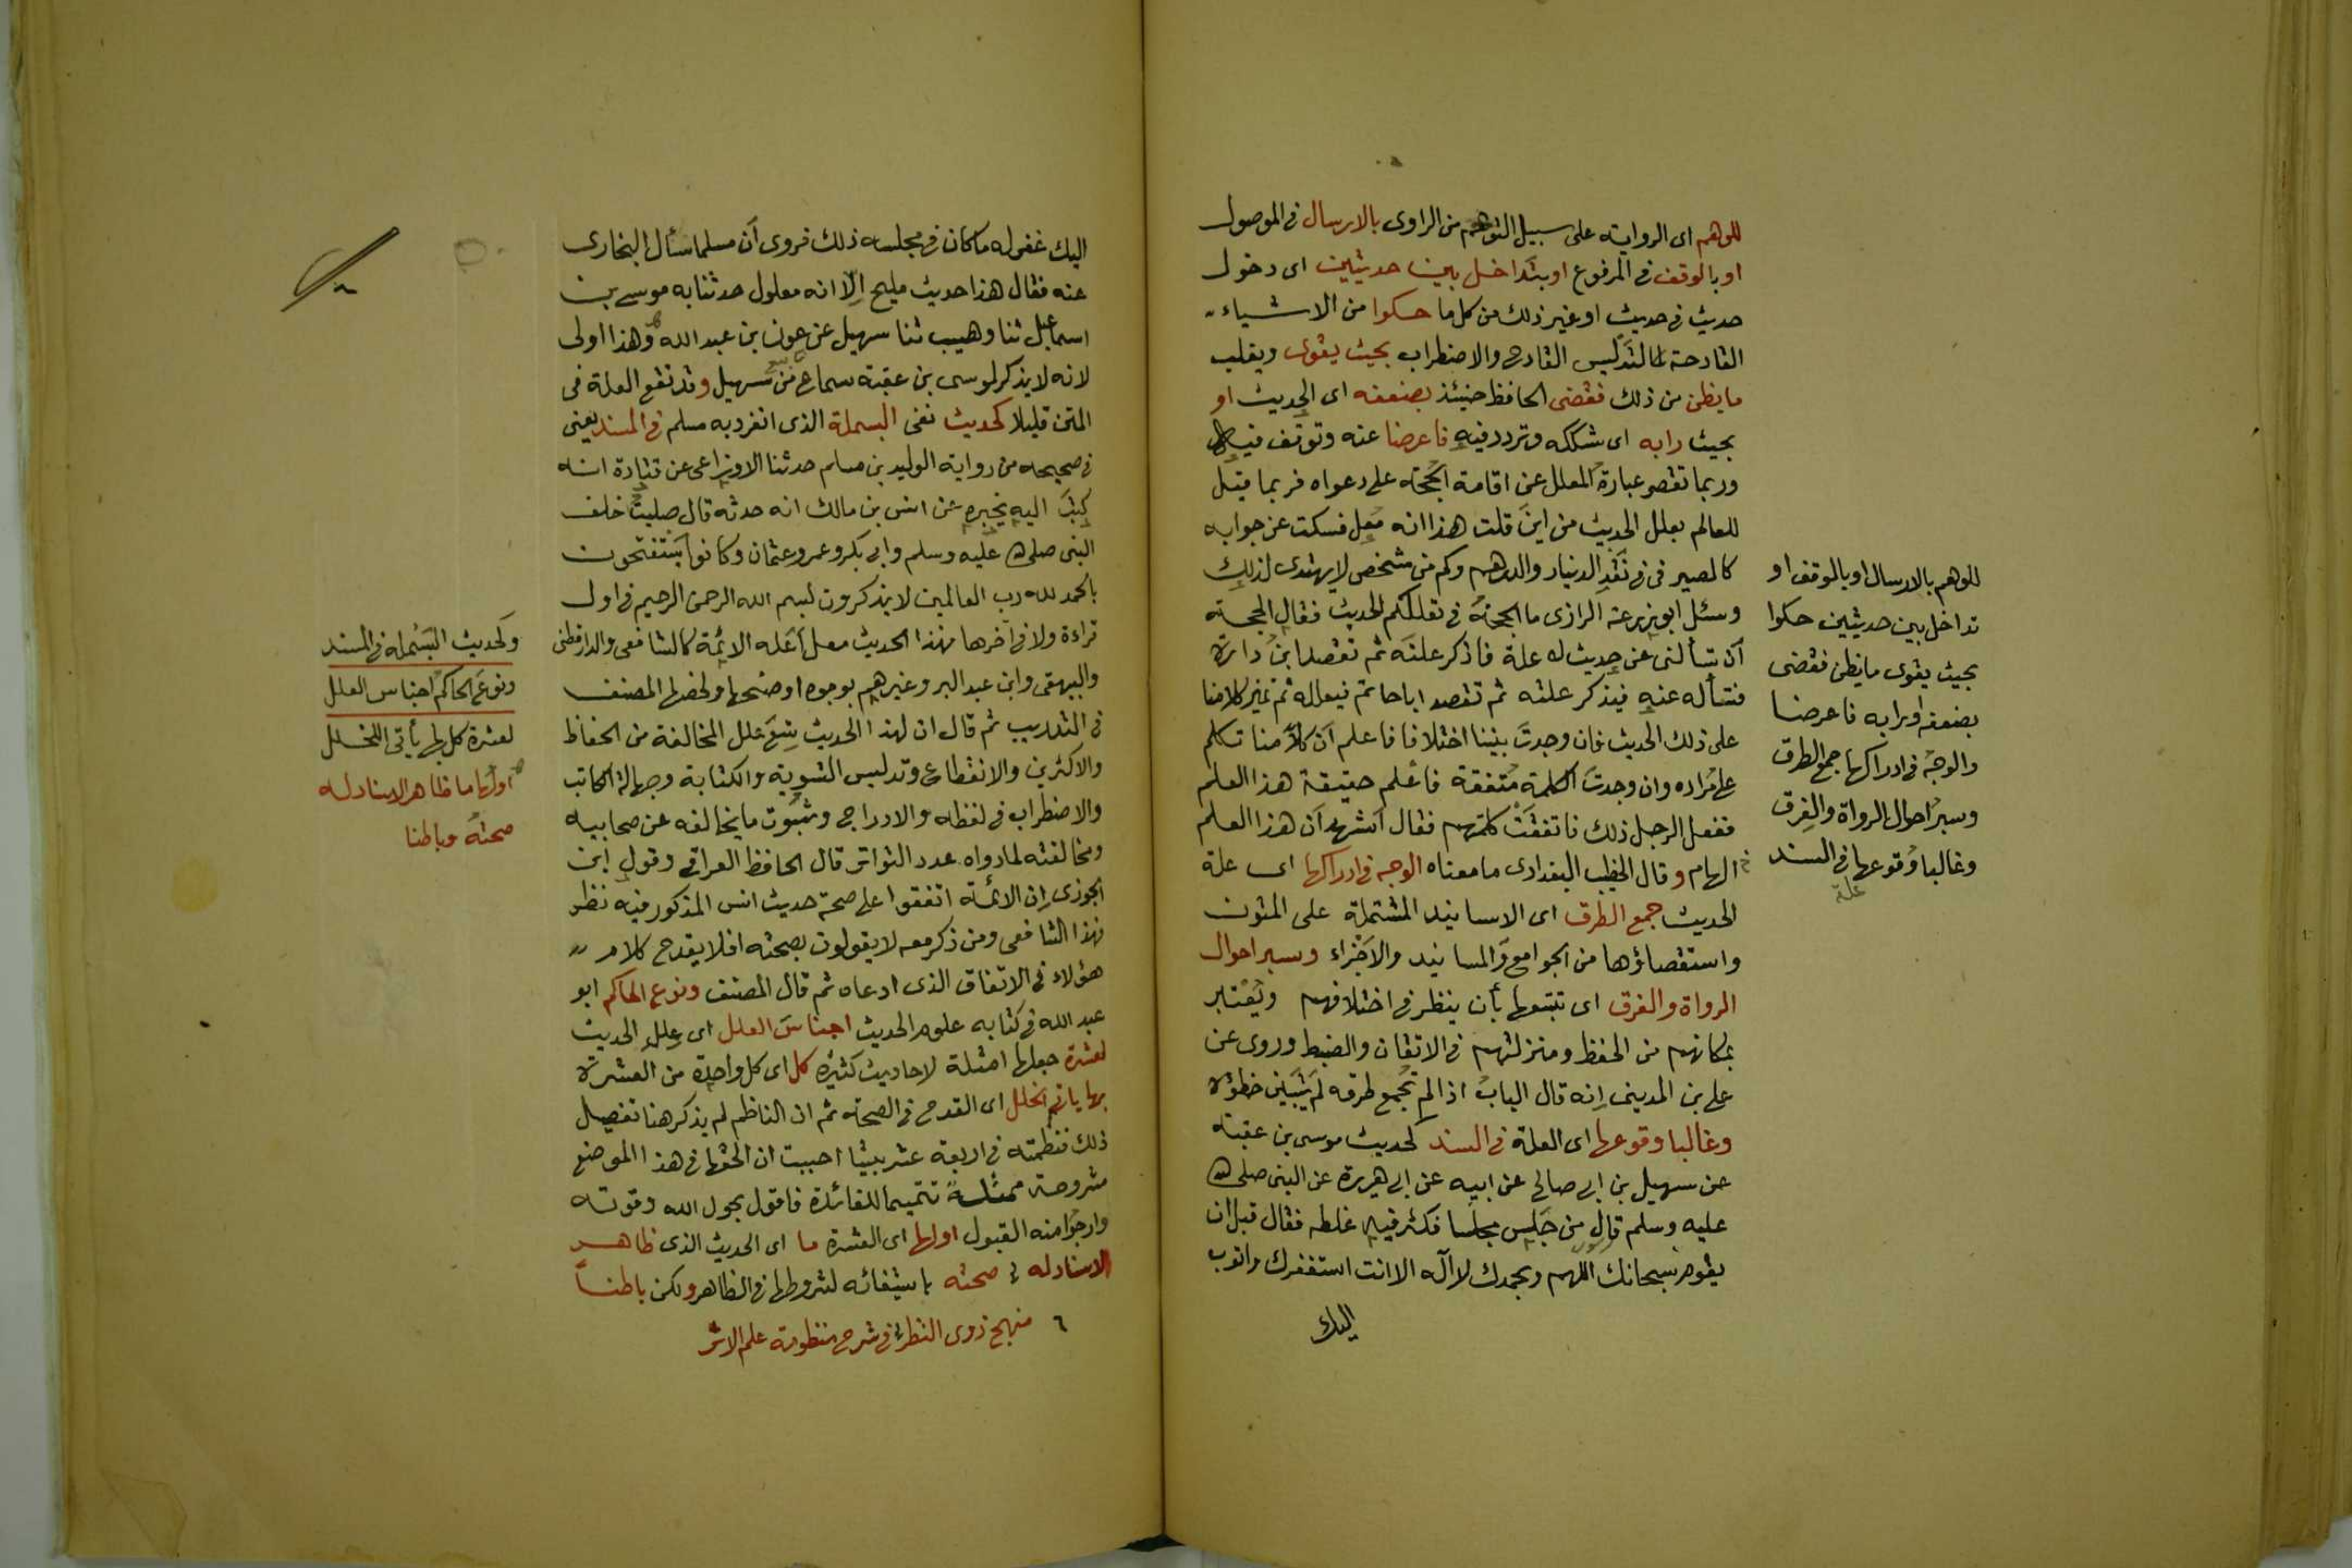 للوهم اى الرواية على سبيل التوهم من الراوى بالارسال فى الموصول
او بالوقف فى المرفوع او بتداخل بين حديثين اى دخول
حديث فى حديث او غير ذلك من كل ما حكوا من الاشياء
القادحة كالتدليس القادح والاضطراب بحيث يقوى ويغلب
ما يظن من ذلك فقضى الحافظ حينئذ بضعفه اى الحديث او
بحيث رابه اى شككه وتردد فيه فاعرضا عنه وتوقف فيه
وربما تقصر عبارة المعلل عن اقامة الحجة على دعواه فربما قيل
للعالم بعلل الحديث من اين قلت هذا انه معل فسكت عن جوابه
كالصيرفى فى نقد الدينار والدرهم وكم من شخص لا يهتدى لذلك
وسئل ابو زرعة الرازى ما الحجة فى تعللكم الحديث فقال الحجة
ان تسألنى عن حديث له علة فاذكر علته ثم تقصد ابن دارة
فتسأله عنه فيذكر علته ثم تقصد اباحاتم فيعلله ثم تميز كلامنا
على ذلك الحديث فان وجدت بيننا اختلافا فاعلم ان كلا منا تكلم
على مراده وان وجدت الكلمة متفقة فاعلم حقيقة هذا العلم
ففعل الرجل ذلك فاتفقت كلمتهم فقال اشهد ان هذا العلم
الهام وقال الخطيب البغدادى ما معناه الوجه فى ادراكها اى علة
الحديث جمع الطرق اى الاسانيد المشتملة على المتون
واستقصاؤها من الجوامع والمسانيد والاجزاء وسبر احوال
الرواة والفرق اى تتبعها بأن ينظر فى اختلافهم ويعتبر
بمكانهم من الحفظ ومنزلتهم فى الاتقان والضبط وروى عن
على بن المدينى انه قال الباب اذا لم تجمع طرقه لم يتبين خطؤه
وغالبا وقوعها اى العلة فى السند كحديث موسى بن عقبة
عن سهيل بن ابى صالح عن ابيه عن ابى هريرة عن النبى صلى الله
عليه وسلم قال من جلس مجلسا فكثر فيه لغطه فقال قبل ان
يقوم سبحانك اللهم وبحمدك لا اله الا انت استغفرك واتوب
اليك
للوهم بالارسال او بالوقف او
تداخل بين حديثين حكوا
بحيث يقوى ما يظن فقضى
بضعفه او رابه فاعرضا
والوجه فى ادراكها جمع الطرق
وسبر احوال الرواة والفرق
وغالبا وقوعها فى السند
علة
اليك غفر له ما كان فى مجلسه ذلك فروى ان مسلما سأل البخارى
عنه فقال هذا حديث مليح الا انه معلول حدثنا به موسى بن
اسماعيل ثنا وهيب ثنا سهيل عن عون بن عبد الله وهذا اولى
لانه لا يذكر لموسى بن عقبة سماع من سهيل وقد تقع العلة فى
المتن قليلا كحديث نفى البسملة الذى انفرد به مسلم فى المسند يعنى
فى صحيحه من رواية الوليد بن مسلم حدثنا الاوزاعى عن قتادة انه
كتب اليه يخبره عن انس بن مالك انه حدثه قال صليت خلف
النبى صلى الله عليه وسلم وابى بكر وعمر وعثمان وكانوا يستفتحون
بالحمد لله رب العالمين لا يذكرون بسم الله الرحمن الرحيم فى اول
قراءة ولا فى آخرها فهذا الحديث معل اعله الائمة كالشافعى والدارقطنى
والبيهقى وابن عبد البر وغيرهم بوجوه اوضحها ولخصها المصنف
فى التدريب ثم قال ان لهذا الحديث تسع علل المخالفة من الحفاظ
والاكثرين والانقطاع وتدليس التسوية والكتابة وجهالة الكاتب
والاضطراب فى لفظه والادراج وثبوت ما يخالفه عن صحابيه
ومخالفته لما رواه عدد التواتر قال الحافظ العراقى وقول ابن
الجوزى ان الائمة اتفقوا على صحة حديث انس المذكور فيه نظر
فهذا الشافعى ومن ذكر معه لا يقولون بصحته افلا يقدح كلام
هؤلاء فى الاتفاق الذى ادعاه ثم قال المصنف ونوع الحاكم ابو
عبد الله فى كتابه علوم الحديث اجناس العلل اى علل الحديث
لعشرة جعلها امثلة لاحاديث كثيرة كل اى كل واحدة من العشرة
بها يأتى الخلل اى القدح فى الصحة ثم ان الناظم لم يذكر هنا تفصيل
ذلك فنظمته فى اربعة عشر بيتا احببت ان الحقها فى هذا الموضع
مشروحة ممثلة تتميما للفائدة فاقول بحول الله وقوته
وارجوا منه القبول اولها اى العشرة ما اى الحديث الذى ظاهر
الاسناد له صحته باستيفائه لشروطها فى الظاهر ولكن باطنا
٦ منهج ذوى النظر فى شرح منظومة علم الاثر
وكحديث البسملة فى المسند
ونوع الحاكم اجناس العلل
لعشرة كل بها يأتى الخلل
اولها ما ظاهر الاسناد له
صحته وباطنا